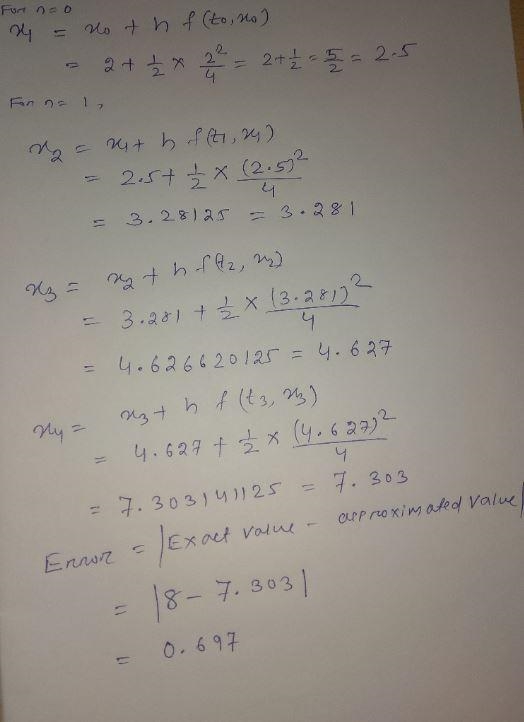 For n=0
x₁ = x₀ + h f(t₀, x₀)
= 2 + 1/2 × 2²/4 = 2 + 1/2 = 5/2 = 2.5
For n = 1,
x₂ = x₁ + h f(t₁, x₁)
= 2.5 + 1/2 × (2.5)²/4
= 3.28125 = 3.281
x₃ = x₂ + h f(t₂, x₂)
= 3.281 + 1/2 × (3.281)²/4
= 4.626620125 = 4.627
x₄ = x₃ + h f(t₃, x₃)
= 4.627 + 1/2 × (4.627)²/4
= 7.303141125 = 7.303
Error = |Exact value - approximated value|
= |8 - 7.303|
= 0.697